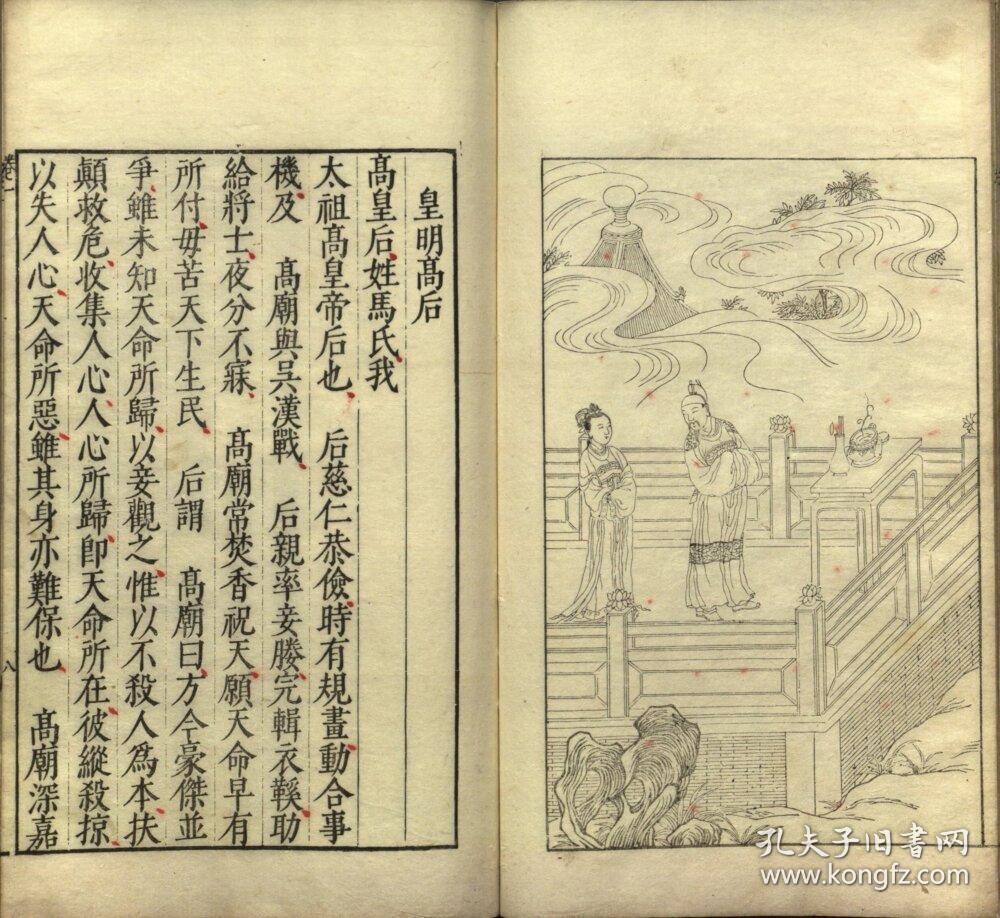 皇明髙后
髙皇后姓馬氏我
太祖髙皇帝后也 后慈仁恭儉時有規畫動合事
機及 髙廟與吴漢戰 后親率妾媵完輯衣鞵助
給將士夜分不寐 髙廟常焚香祝天願天命早有
所付毋苦天下生民 后謂 髙廟曰方今豪傑並
爭雖未知天命所歸以妾觀之惟以不殺人爲本扶
顛救危收集人心人心所歸即天命所在彼縱殺掠
以失人心天命所惡雖其身亦難保也 髙廟深嘉
卷一
八
孔夫子旧书网
www.kongfz.com